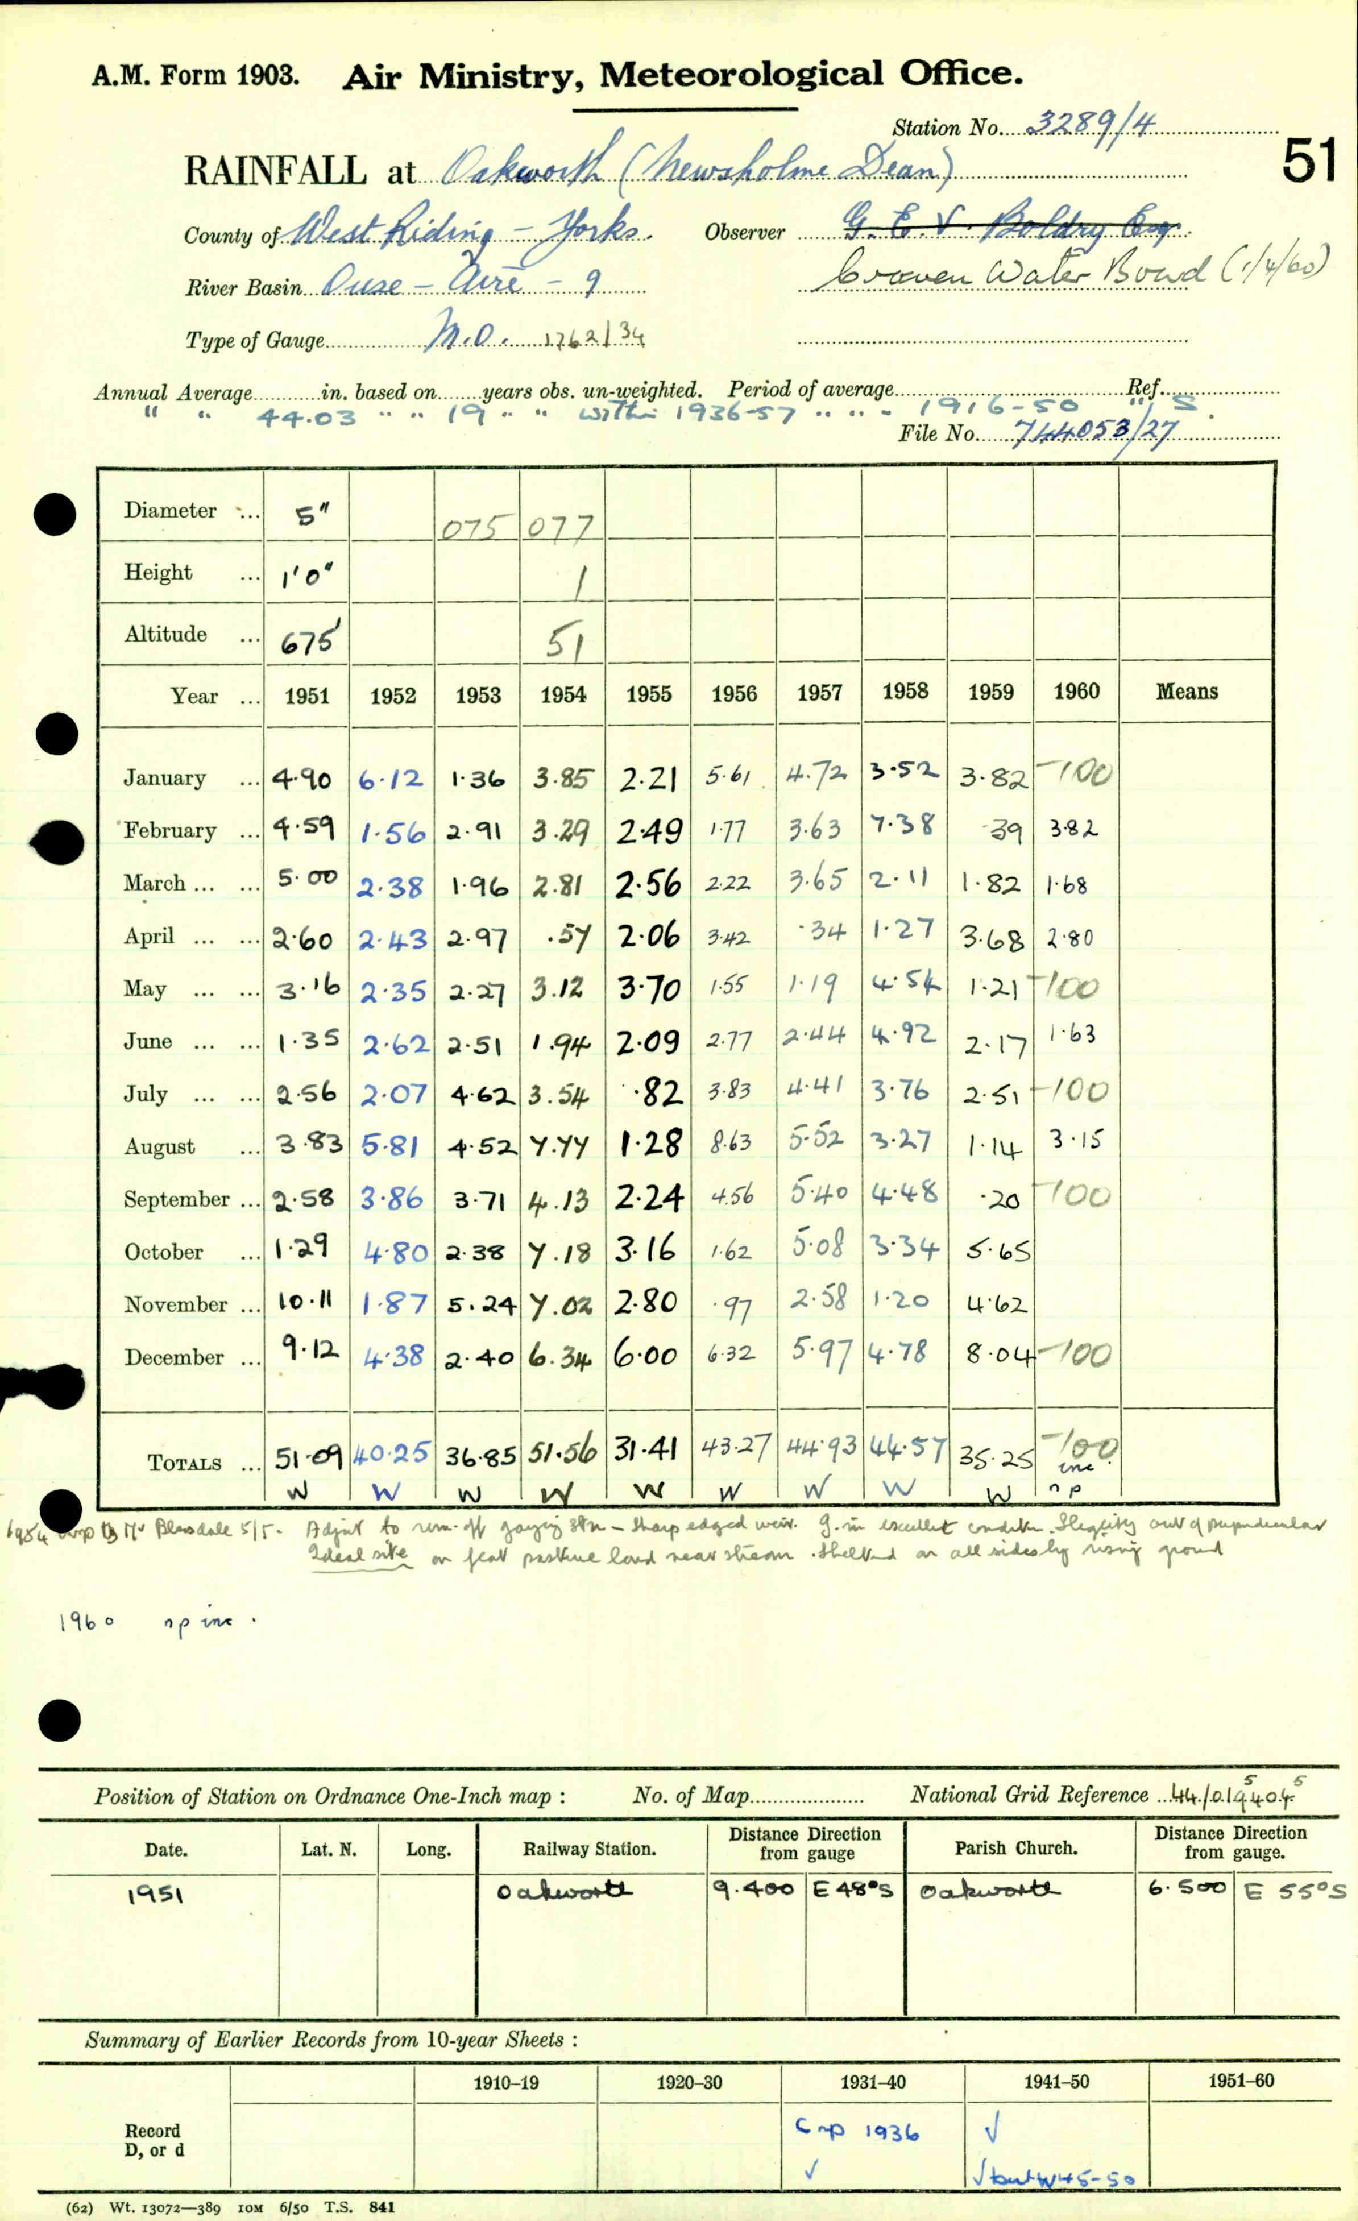 A.M. Form 1903. Air Ministry, Meteorological Office.
Station No. 3289/4
51
RAINFALL at Oakworth (Newsholme Dean)
County of West Riding - Yorks. Observer G. E. V. Boldry Esq.
River Basin Ouse - Aire - 9 Craven Water Board (1/4/60)
Type of Gauge M.O. 1762/34
Annual Average in. based on years obs. un-weighted. Period of average Ref.
" " 44.03 " " 19 " " within 1936-57 " " - 1916-50 " S.
File No. 744053/27
Diameter ... 5" 075 077
Height ... 1'0" 1
Altitude ... 675' 51
Year ... 1951 1952 1953 1954 1955 1956 1957 1958 1959 1960 Means
January ... 4.90 6.12 1.36 3.85 2.21 5.61 4.72 3.52 3.82 -100
February ... 4.59 1.56 2.91 3.29 2.49 1.77 3.63 7.38 .39 3.82
March ... ... 5.00 2.38 1.96 2.81 2.56 2.22 3.65 2.11 1.82 1.68
April ... ... 2.60 2.43 2.97 .57 2.06 3.42 .34 1.27 3.68 2.80
May ... ... 3.16 2.35 2.27 3.12 3.70 1.55 1.19 4.54 1.21 -100
June ... ... 1.35 2.62 2.51 1.94 2.09 2.77 2.44 4.92 2.17 1.63
July ... ... 2.56 2.07 4.62 3.54 .82 3.83 4.41 3.76 2.51 -100
August ... 3.83 5.81 4.52 7.77 1.28 8.63 5.52 3.27 1.14 3.15
September ... 2.58 3.86 3.71 4.13 2.24 4.56 5.40 4.48 .20 -100
October ... 1.29 4.80 2.38 7.18 3.16 1.62 5.08 3.34 5.65
November ... 10.11 1.87 5.24 7.02 2.80 .97 2.58 1.20 4.62
December ... 9.12 4.38 2.40 6.34 6.00 6.32 5.97 4.78 8.04 -100
TOTALS ... 51.09 40.25 36.85 51.56 31.41 43.27 44.93 44.57 35.25 -100 inc.
W W W W W W W W W np
1954 insp by Mr Bleasdale 5/5. Adjnt to run-off gauging stn - sharp edged weir. g. in excellent condition. Slightly out of perpendicular
Ideal site on flat pasture land near stream. Sheltered on all sides by rising ground
1960 np inc.
Position of Station on Ordnance One-Inch map : No. of Map National Grid Reference 44/019⁵404⁵
Date. Lat. N. Long. Railway Station. Distance from gauge Direction Parish Church. Distance from gauge. Direction
1951 Oakworth 9.400 E 48°S Oakworth 6.500 E 55°S
Summary of Earlier Records from 10-year Sheets :
1910–19 1920–30 1931–40 1941–50 1951–60
Record
D, or d
Cmp 1936 ✓
✓ ✓ but W45-50
(62) Wt. 13072—389 10M 6/50 T.S. 841